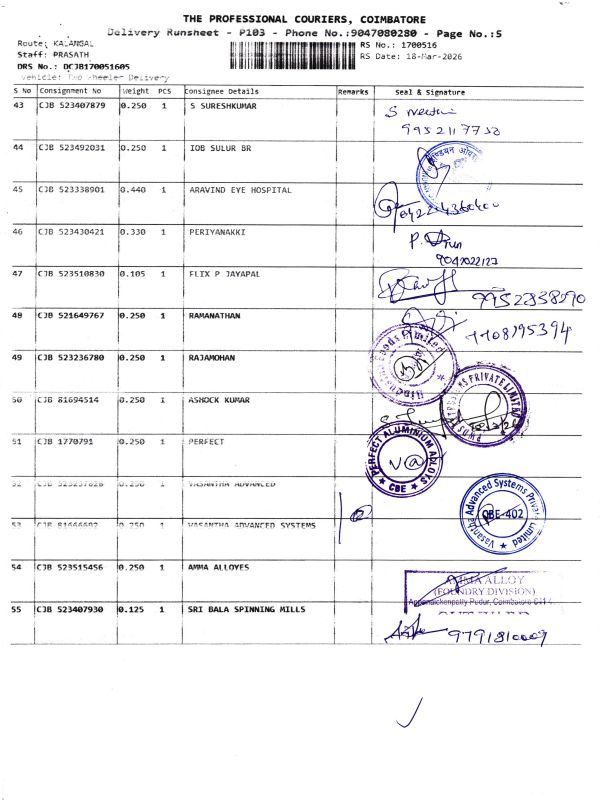 THE PROFESSIONAL COURIERS, COIMBATORE
Delivery Runsheet - P103 - Phone No.:9047080280 - Page No.:5
Route: KALANGAL
Staff: PRASATH
DRS No.: DCJB170051605
Vehicle: Two Wheeler Delivery
RS No.: 1700516
RS Date: 18-Mar-2026
S No Consignment No Weight PCS Consignee Details Remarks Seal & Signature
43 CJB 523407879 0.250 1 S SURESHKUMAR
44 CJB 523492031 0.250 1 IOB SULUR BR
45 CJB 523338901 0.440 1 ARAVIND EYE HOSPITAL
46 CJB 523430421 0.330 1 PERIYANAKKI
9047022127
47 CJB 523510830 0.105 1 FLIX P JAYAPAL
48 CJB 521649767 0.250 1 RAMANATHAN
7708195394
49 CJB 523236780 0.250 1 RAJAMOHAN
50 CJB 81694514 0.250 1 ASHOCK KUMAR
PRIVATE LIMITED
51 CJB 1770791 0.250 1 PERFECT
PERFECT ALUMINIUM ALLOYS
CBE
52 0.250 1 VASANTHA ADVANCED
53 CJB 0.250 1 VASANTHA ADVANCED SYSTEMS
Vasantha Advanced Systems Private Limited
CBE-402
54 CJB 523515456 0.250 1 AMMA ALLOYES
AMMA ALLOY
(FOUNDRY DIVISION)
55 CJB 523407930 0.125 1 SRI BALA SPINNING MILLS
9791810009